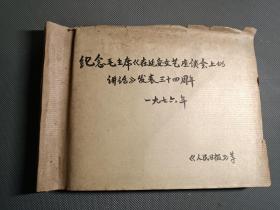 纪念毛主席《在延安文艺座谈会上的
讲话》发表三十四周年
一九七六年
《人民日报》等